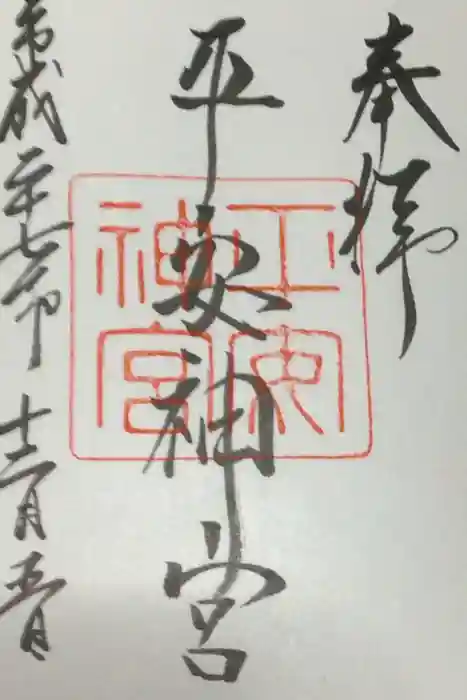 奉拝
平安神宮
平安
神宮
平成二十七年 十二月五日